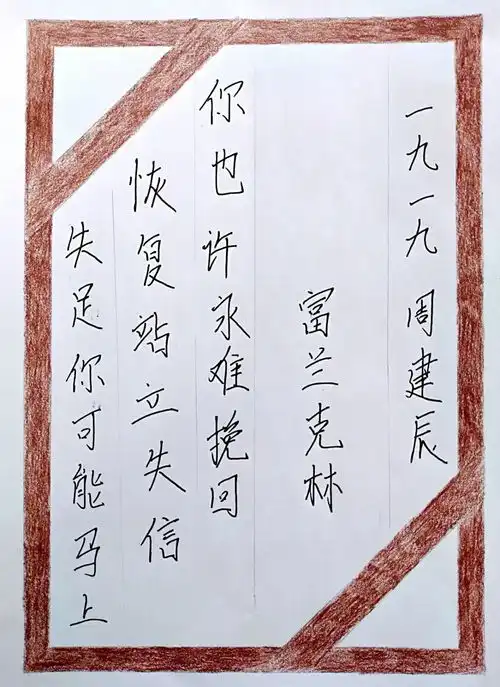 失足你可能马上
恢复站立失信
你也许永难挽回
富兰克林
一九一九 周建辰